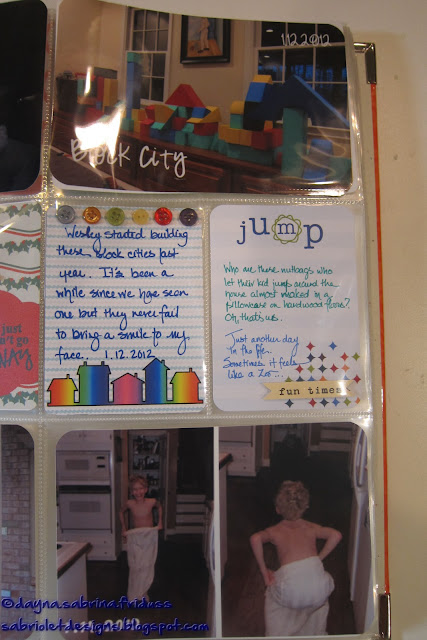 1.12.2012
Block City
Wesley started building
these block cities last
year. It's been a
while since we have seen
one but they never fail
to bring a smile to my
face. 1.12.2012
jump
Who are these nutbags who
let their kid jump around the
house almost naked in a
pillowcase on hardwood floors?
Oh, that's us.
Just another day
in the life.
Sometimes it feels
like a zoo...
fun times
just
n't go
WAY
©dayna.sabrina.friduss
sabrioletdesigns.blogspot.com